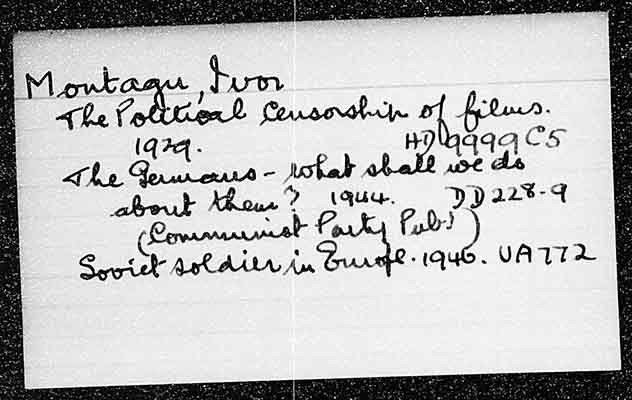 Montagu, Ivor
The Political Censorship of films.
1929. HD9999C5
The Germans - what shall we do
about them? 1944. DD228.9
(Communist Party Pubs)
Soviet soldier in Europe. 1946. UA772